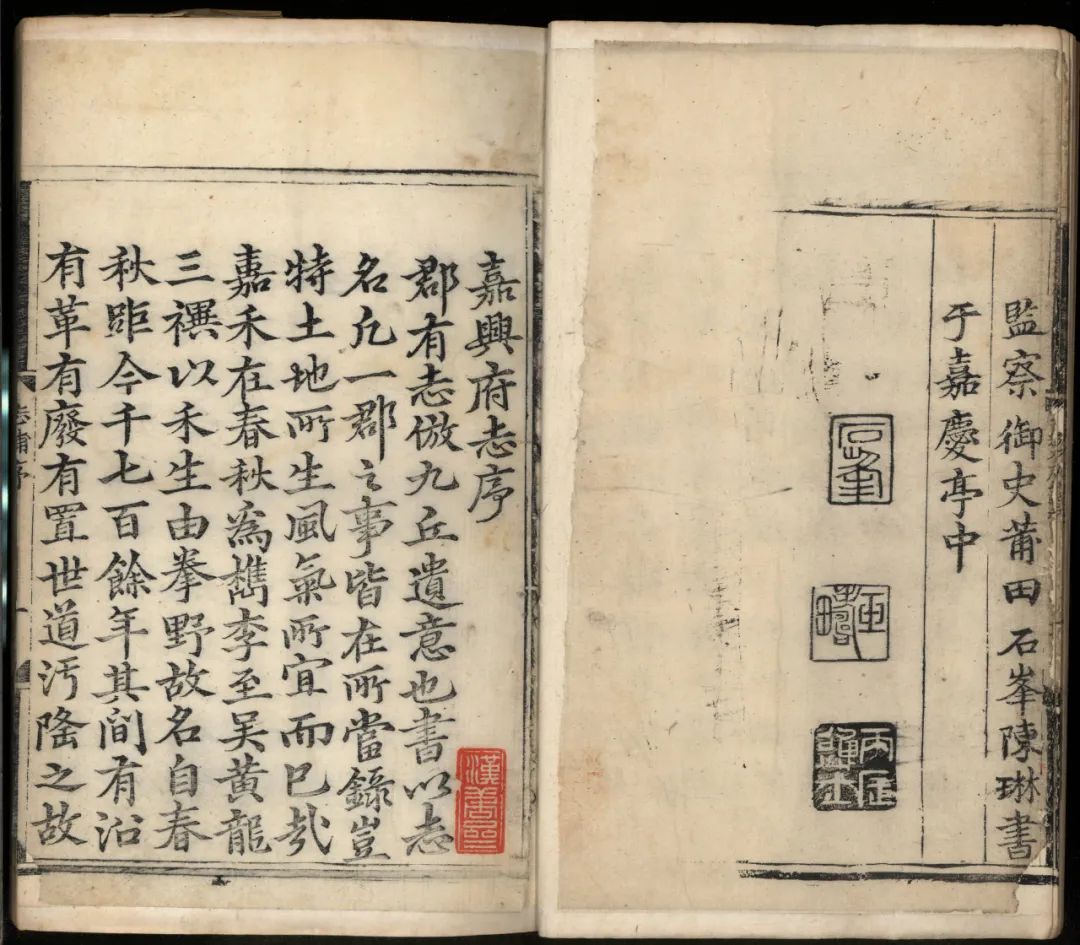 監察御史莆田石峯陳琳書
于嘉慶亭中
石峯
丙辰進士
嘉興府志序
郡有志倣九丘遺意也書以志
名凢一郡之事皆在所當錄豈
特土地所生風氣所宜而已㢤
嘉禾在春秋為檇李至吴黄龍
三禩以禾生由拳野故名自春
秋距今千七百餘年其间有沿
有革有廢有置世道汚隆之故